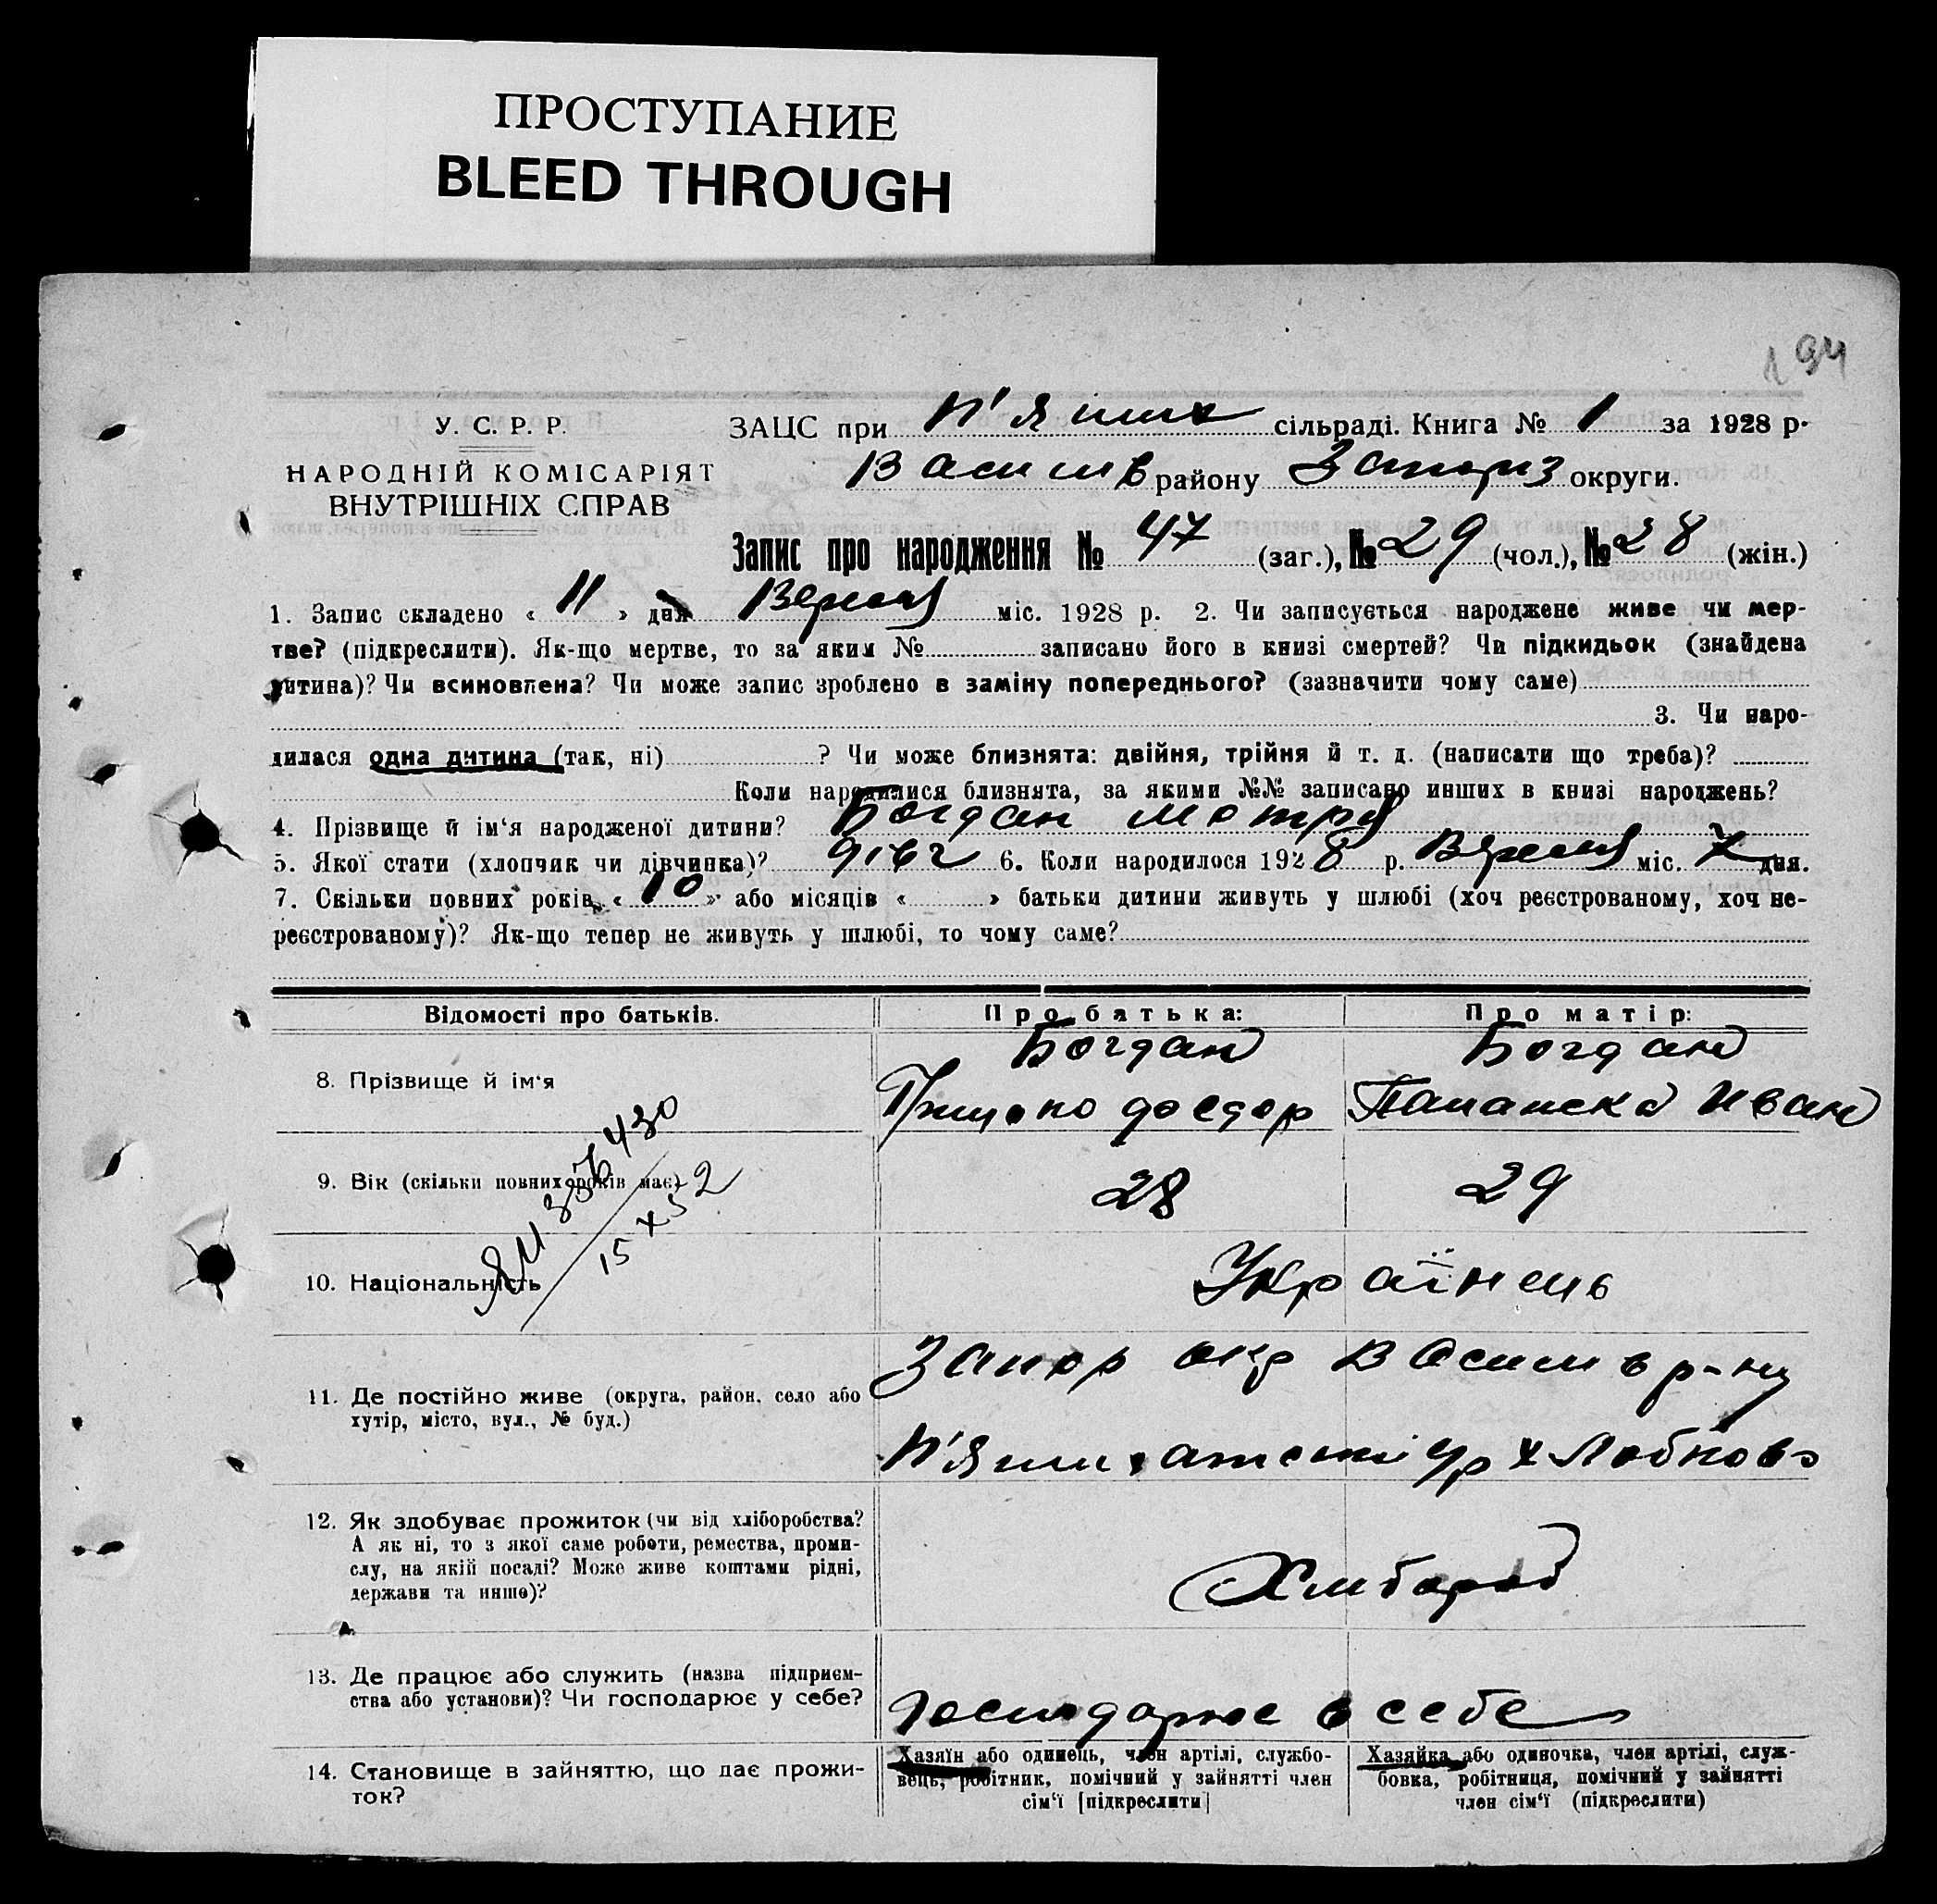 ПРОСТУПАНИЕ
BLEED THROUGH
194
У. С. Р. Р.
НАРОДНІЙ КОМІСАРІЯТ
ВНУТРІШНІХ СПРАВ
ЗАЦС при П'я сільраді. Книга № 1 за 1928 р.
Васил району Запоріз округи.
Запис про народження № 47 (заг.), № 29 (чол.), № 28 (жін.)
1. Запис складено « 11 » дня Вересня міс. 1928 р. 2. Чи записується народжене живе чи мер-
тве? (підкреслити). Як-що мертве, то за яким № записано його в книзі смертей? Чи підкидьок (знайдена
дитина)? Чи всиновлена? Чи може запис зроблено в заміну попереднього? (зазначити чому саме)
3. Чи наро-
дилася одна дитина (так, ні) ? Чи може близнята: двійня, трійня й т. д. (написати що треба)?
Коли народилися близнята, за якими №№ записано инших в книзі народжень?
4. Прізвище й ім'я народженої дитини? Богдан Мотря
5. Якої стати (хлопчик чи дівчинка)? дівч 6. Коли народилося 1928 р. Вересня міс. 7 дня.
7. Скільки повних років « 10 » або місяців « » батьки дитини живуть у шлюбі (хоч реєстрованому, хоч не-
реєстрованому)? Як-що тепер не живуть у шлюбі, то чому саме?
Відомості про батьків. Про батька: Про матір:
8. Прізвище й ім'я
Богдан Богдан
Иван
9. Вік (скільки повних років має) 28 29
15 X 52
10. Національність Українець
11. Де постійно живе (округа, район, село або
хутір, місто, вул., № буд.)
Запор окр Васил р-ну
х
12. Як здобуває прожиток (чи від хліборобства?
А як ні, то з якої саме роботи, ремества, проми-
слу, на якій посаді? Може живе коштами рідні,
держави та инше)?
Хлибороб
13. Де працює або служить (назва підприєм-
ства або установи)? Чи господарює у себе?
Господарює в себе
14. Становище в зайняттю, що дає прожи-
ток?
Хазяїн або одинець, член артілі, службо-
вець, робітник, помічний у зайнятті член
сім'ї [підкреслити]
Хазяйка або одиночка, член артілі, служ-
бовка, робітниця, помічний у зайнятті
член сім'ї (підкреслити)